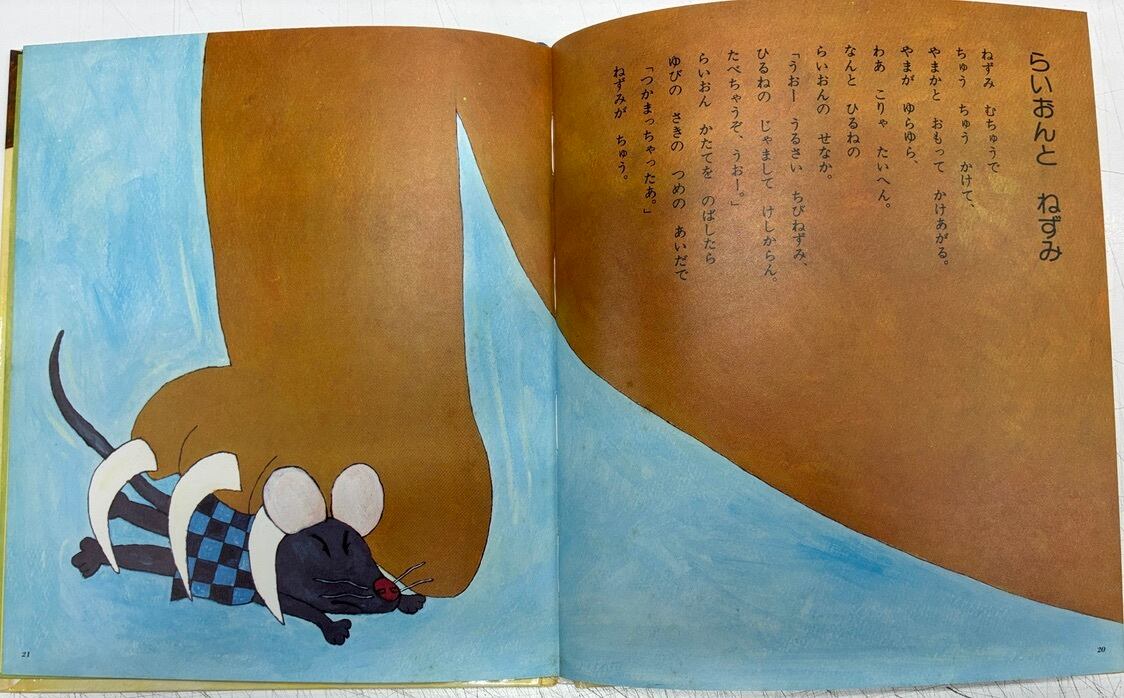 らいおんと　ねずみ
ねずみ　むちゅうで
ちゅう　ちゅう　かけて、
やまかと　おもって　かけあがる。
やまが　ゆらゆら、
わあ　こりゃ　たいへん。
なんと　ひるねの
らいおんの　せなか。
「うおー　うるさい　ちびねずみ、
ひるねの　じゃまして　けしからん。
たべちゃうぞ、うおー。」
らいおん　かたてを　のばしたら
ゆびの　さきの　つめの　あいだで
「つかまっちゃったあ。」
ねずみが　ちゅう。
20
21